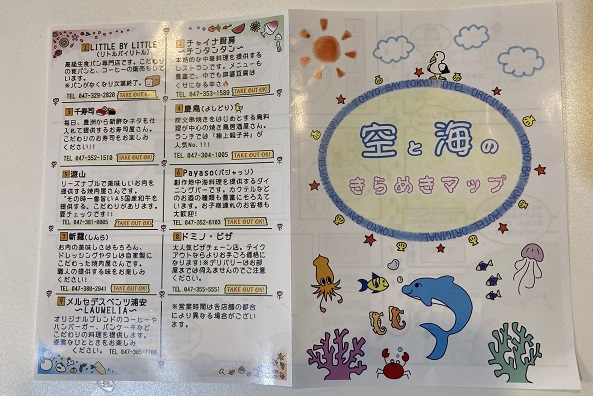 1 LITTLE BY LITTLE
(リトルバイリトル)
高級生食パン専門店です。こだわり
の食パンと、コーヒーの販売もして
います。
※パンがなくなり次第終了。
TEL 047-329-2820 TAKE OUT OK!
2 チャイナ厨房
〜チンタンタン〜
本格的な中華料理を提供する
レストランです。メニューも
豊富で、中でも麻婆豆腐は
くせになる辛さ
TEL 047-353-1589 TAKE OUT OK!
3 千寿司
毎日、豊洲から新鮮なネタを仕
入れて提供するお寿司屋さん。
こだわりのお寿司をお楽しみ
ください!!
TEL 047-352-1510 TAKE OUT OK!
4 慶鳥(よしどり)
炭火串焼きをはじめとする鳥料
理が中心の焼き鳥居酒屋さん。
ランチでは「極上親子丼」が
人気No.1!!
TEL 047-304-1005 TAKE OUT OK!
5 遊山
リーズナブルで美味しいお肉を提
供する焼肉屋さんです。
"その時一番旨いA5国産和牛を
提供する。こだわりがあります。
要チェックです!!
TEL 047-381-0005 TAKE OUT OK!
6 Payaso(パジャッソ)
創作地中海料理を提供するダイ
ニングバーです。カクテルなど
のお酒の種類も豊富にそろえて
います。お子様連れのお客様も
大歓迎!
TEL 047-352-6103 TAKE OUT OK!
7 新羅(しんら)
お肉の美味しさはもちろん、
ドレッシングやタレは自家製に
こだわった焼肉屋さんです。
職人の提供する味をお楽しみ
ください!!
TEL 047-380-2941 TAKE OUT OK!
8 ドミノ・ピザ
大人気ピザチェーン店。テイク
アウトならよりお手ごろ価格に
なります!※デリバリーはお部
屋までは伺えませんのでご注意
ください。
TEL 047-355-5551 TAKE OUT OK!
9 メルセデスベンツ浦安
〜LAUMELIA〜
オリジナルブレンドのコーヒーや
ハンバーガー、パンケーキなど
こだわりの料理を提供します。
素敵なひとときをお楽しみ
ください。 TEL 047-305-7700
※営業時間は各店舗の都合
により異なる場合がござい
ます。
TOKYO BAY TOKYU HOTEL ORIGINAL
空と海の
きらめきマップ